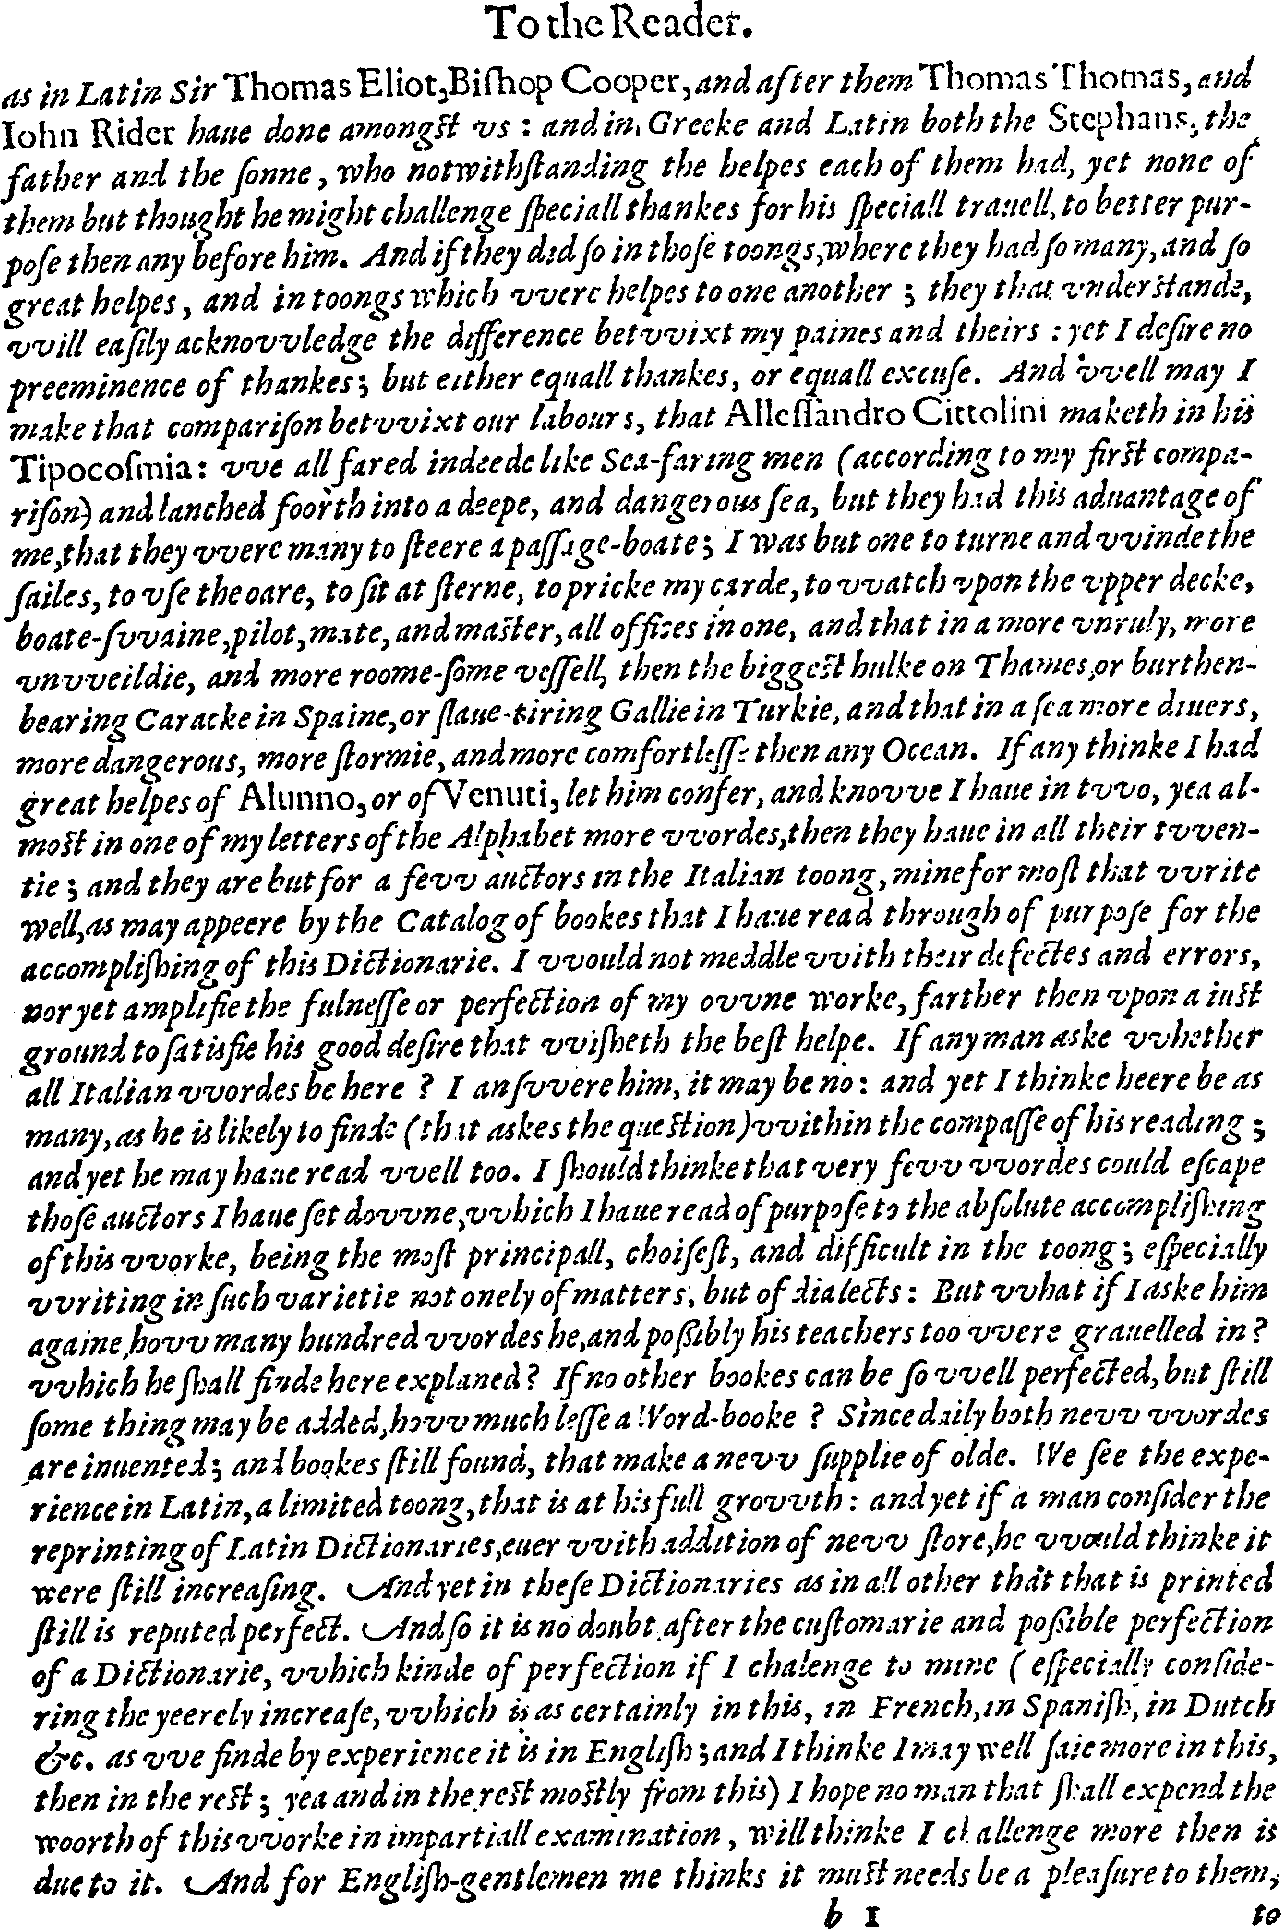 To the Reader.
as in Latin Sir Thomas Eliot, Biſhop Cooper, and after them Thomas Thomas, and
Iohn Rider haue done amongſt vs : and in Greeke and Latin both the Stephans, the
father and the ſonne, who notwithſtanding the helpes each of them had, yet none of
them but thought he might challenge ſpeciall thankes for his ſpeciall trauell, to better pur-
poſe then any before him. And if they did ſo in thoſe toongs, where they had ſo many, and ſo
great helpes, and in toongs which vvere helpes to one another ; they that vnderſtande,
vvill eaſily acknovvledge the difference betvvixt my paines and theirs : yet I deſire no
preeminence of thankes; but either equall thankes, or equall excuſe. And vvell may I
make that compariſon betvvixt our labours, that Alleſſandro Cittolini maketh in his
Tipocoſmia: vve all fared indeede like Sea-faring men (according to my firſt compa-
riſon) and lanched foorth into a deepe, and dangerous ſea, but they had this aduantage of
me, that they vvere many to ſteere a paſſage-boate; I was but one to turne and vvinde the
ſailes, to vſe the oare, to ſit at ſterne, to pricke my carde, to vvatch vpon the vpper decke,
boate-ſvvaine, pilot, mate, and maſter, all offices in one, and that in a more vnruly, more
vnvveildie, and more roome-ſome veſſell, then the biggeſt hulke on Thames, or burthen-
bearing Caracke in Spaine, or ſlaue-tiring Gallie in Turkie, and that in a ſea more diuers,
more dangerous, more ſtormie, and more comfortleſſe then any Ocean. If any thinke I had
great helpes of Alunno, or of Venuti, let him confer, and knovve I haue in tvvo, yea al-
moſt in one of my letters of the Alphabet more vvordes, then they haue in all their tvven-
tie ; and they are but for a fevv auctors in the Italian toong, mine for moſt that vvrite
well, as may appeere by the Catalog of bookes that I haue read through of purpoſe for the
accompliſhing of this Dictionarie. I vvould not meddle vvith their defectes and errors,
nor yet amplifie the fulneſſe or perfection of my ovvne worke, farther then vpon a iuſt
ground to ſatisfie his good deſire that vviſheth the beſt helpe. If any man aske vvhether
all Italian vvordes be here ? I anſvvere him, it may be no: and yet I thinke heere be as
many, as he is likely to finde (that askes the queſtion) vvithin the compaſſe of his reading ;
and yet he may haue read vvell too. I ſhould thinke that very fevv vvordes could eſcape
thoſe auctors I haue ſet dovvne, vvhich I haue read of purpoſe to the abſolute accompliſhing
of this vvorke, being the moſt principall, choiſeſt, and difficult in the toong; eſpecially
vvriting in ſuch varietie not onely of matters, but of dialects: But vvhat if I aske him
againe, hovv many hundred vvordes he, and poſsibly his teachers too vvere grauelled in?
vvhich he ſhall finde here explaned? If no other bookes can be ſo vvell perfected, but ſtill
ſome thing may be added, hovv much leſſe a Word-booke ? Since daily both nevv vvordes
are inuented; and bookes ſtill found, that make a nevv ſupplie of olde. We ſee the expe-
rience in Latin, a limited toong, that is at his full grovvth: and yet if a man conſider the
reprinting of Latin Dictionaries, euer vvith addition of nevv ſtore, he vvould thinke it
were ſtill increaſing. And yet in theſe Dictionaries as in all other that that is printed
ſtill is reputed perfect. And ſo it is no doubt after the cuſtomarie and poſsible perfection
of a Dictionarie, vvhich kinde of perfection if I chalenge to mine ( eſpecially conſide-
ring the yeerely increaſe, vvhich is as certainly in this, in French, in Spaniſh, in Dutch
&c. as vve finde by experience it is in Engliſh; and I thinke I may well ſaie more in this,
then in the reſt; yea and in the reſt moſtly from this) I hope no man that ſhall expend the
woorth of this vvorke in impartiall examination, will thinke I challenge more then is
due to it. And for Engliſh-gentlemen me thinks it muſt needs be a pleaſure to them,
b 1 to